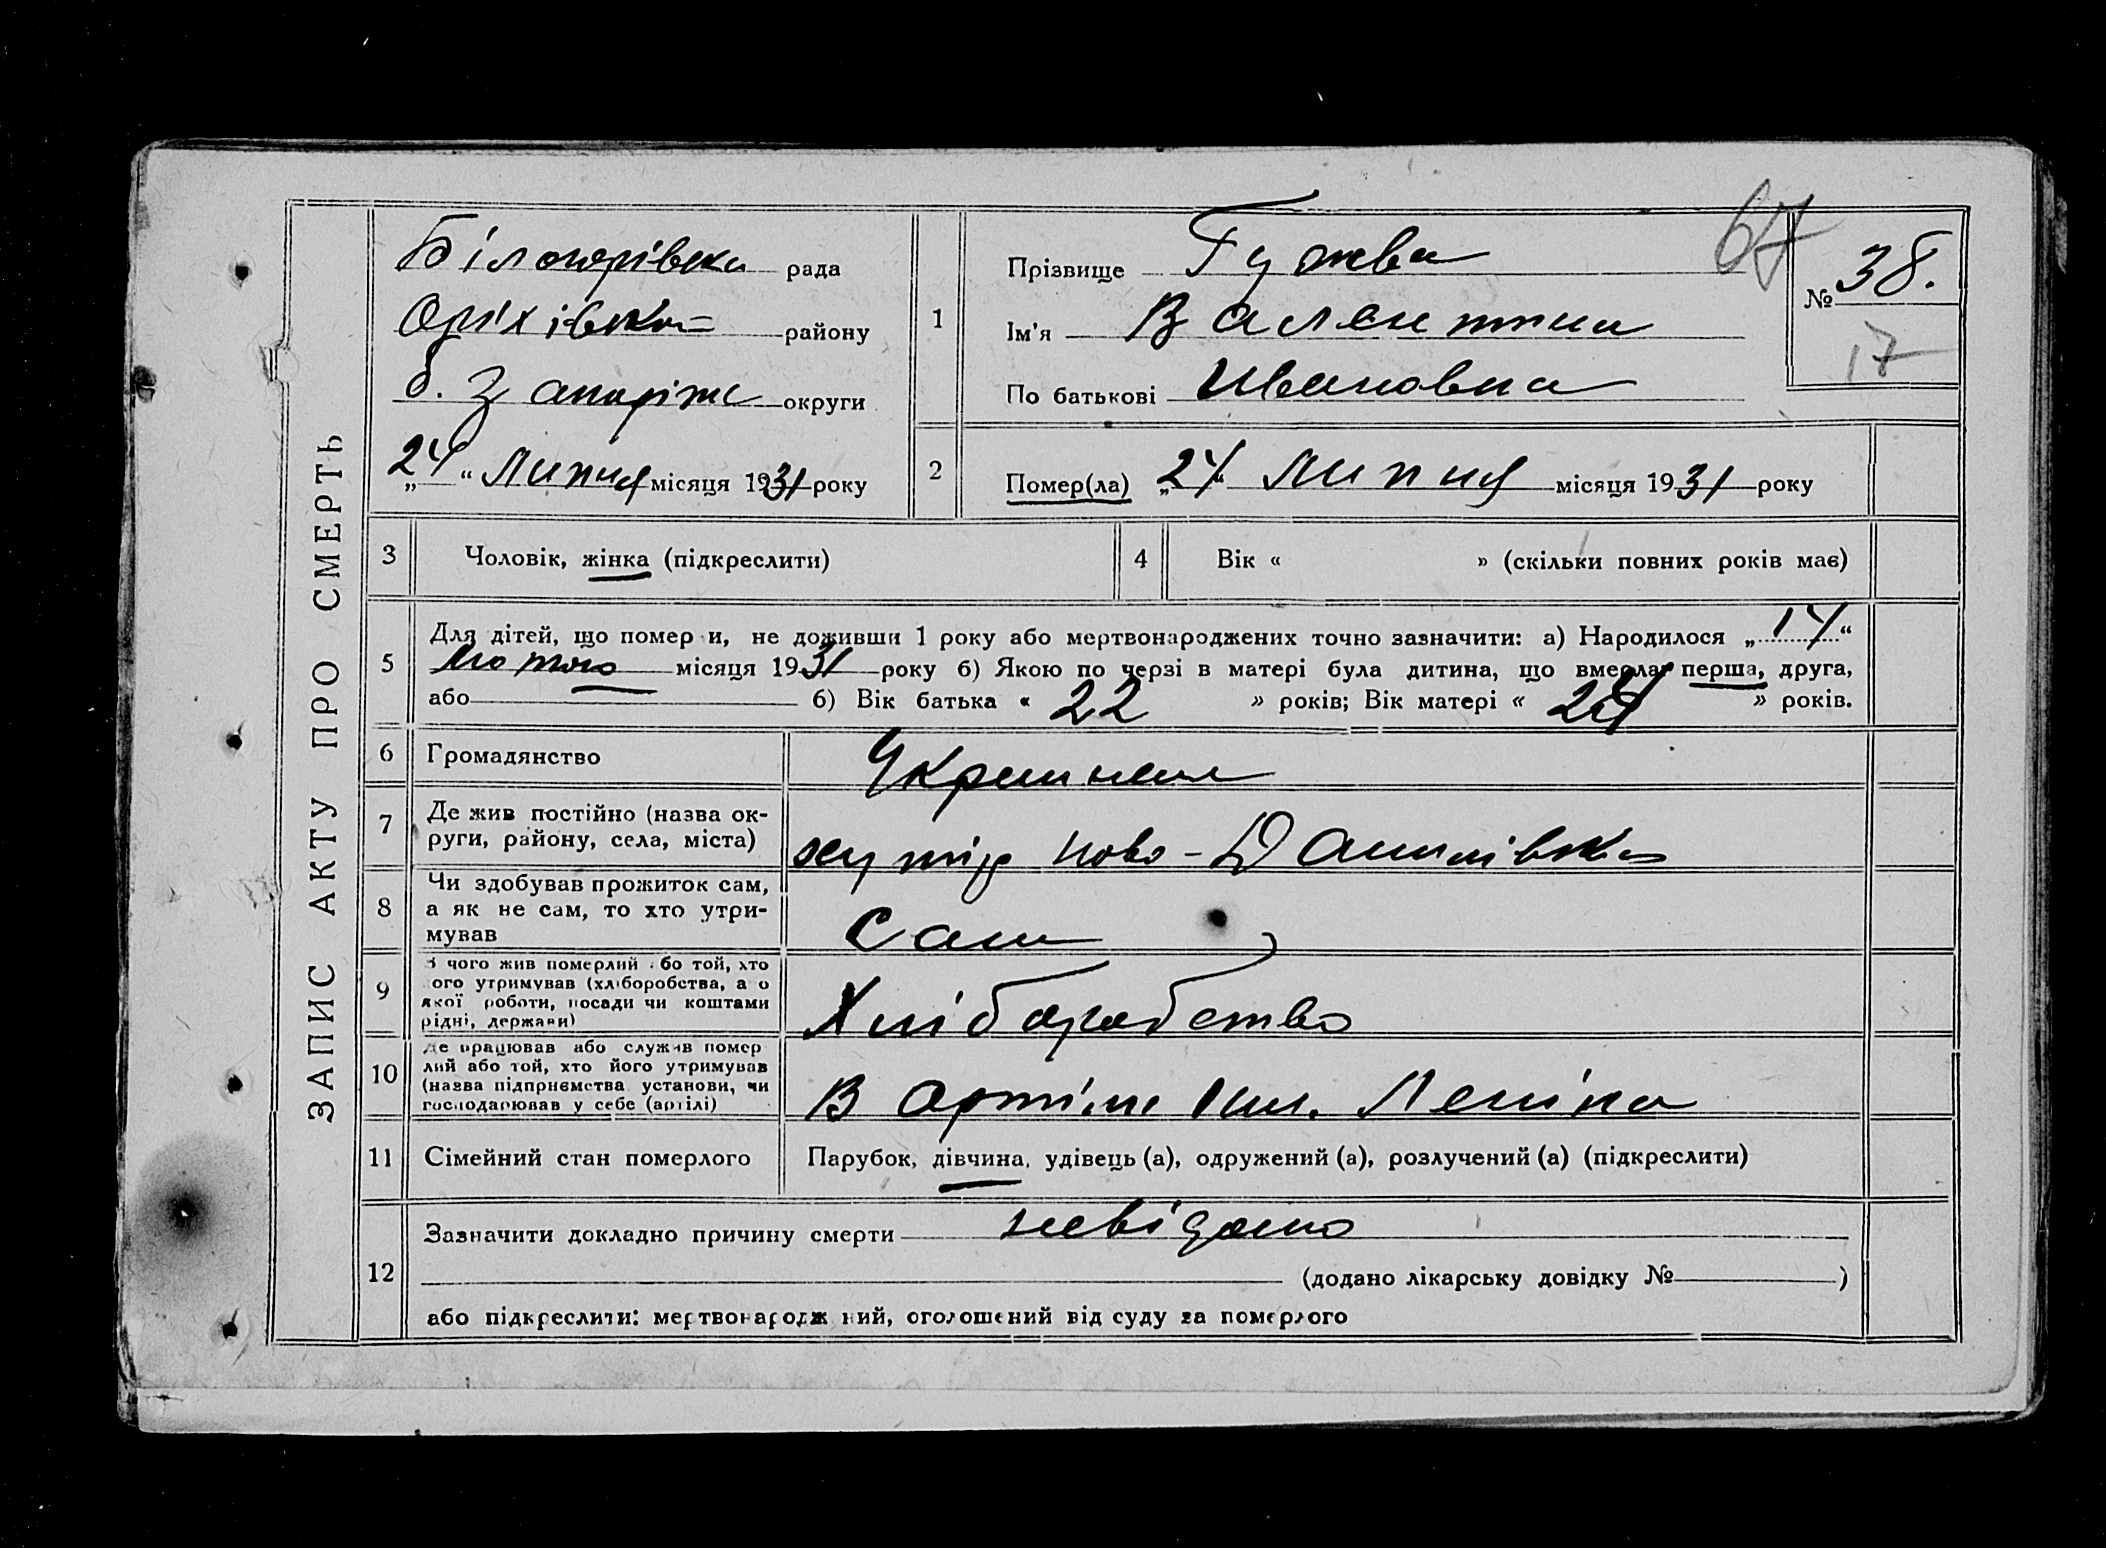 ЗАПИС АКТУ ПРО СМЕРТЬ
Білогорівка рада
Оріхівка району
б. Запоріж округи
„24“ Липня місяця 1931 року
1
Прізвище Гужва
Ім'я Валентина
По батькові Ивановна
67
№ 38.
17
2
Помер(ла) „24“ Липня місяця 1931 року
3 Чоловік, жінка (підкреслити)
4 Вік « » (скільки повних років має)
5 Для дітей, що померли, не доживши 1 року або мертвонароджених точно зазначити: а) Народилося „14“
Лютого місяця 1931 року б) Якою по черзі в матері була дитина, що вмерла: перша, друга,
або б) Вік батька « 22 » років; Вік матері « 24 » років.
6 Громадянство
Украинка
7 Де жив постійно (назва ок-
руги, району, села, міста)
хутір Ново-Данилівка
8 Чи здобував прожиток сам,
а як не сам, то хто утри-
мував
Сам
9 З чого жив померлий або той, хто
його утримував (хліборобства, а о
якої роботи, посади чи коштами
рідні, держави)
Хліборобство
10 Де працював або служив помер
лий або той, хто його утримував
(назва підприємства установи, чи
господарював у себе (артілі)
В Артілі Им. Леніна
11 Сімейний стан померлого
Парубок, дівчина, удівець (а), одружений (а), розлучений (а) (підкреслити)
12 Зазначити докладно причину смерти невідомо
(додано лікарську довідку № )
або підкреслити: мертвонароджений, оголошений від суду за померлого